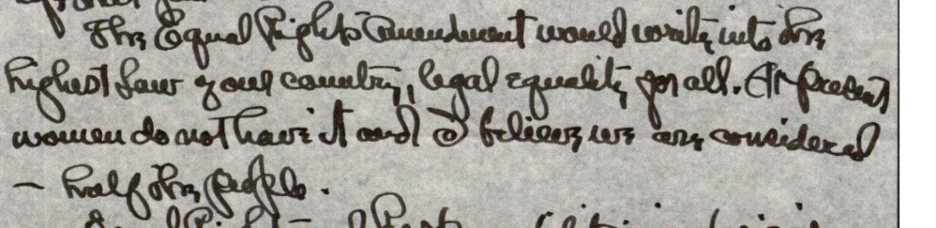 The Equal Rights Amendment would write into the
highest law of our country, legal equality for all. At present
women do not have it and I believe we are considered
— half the people.